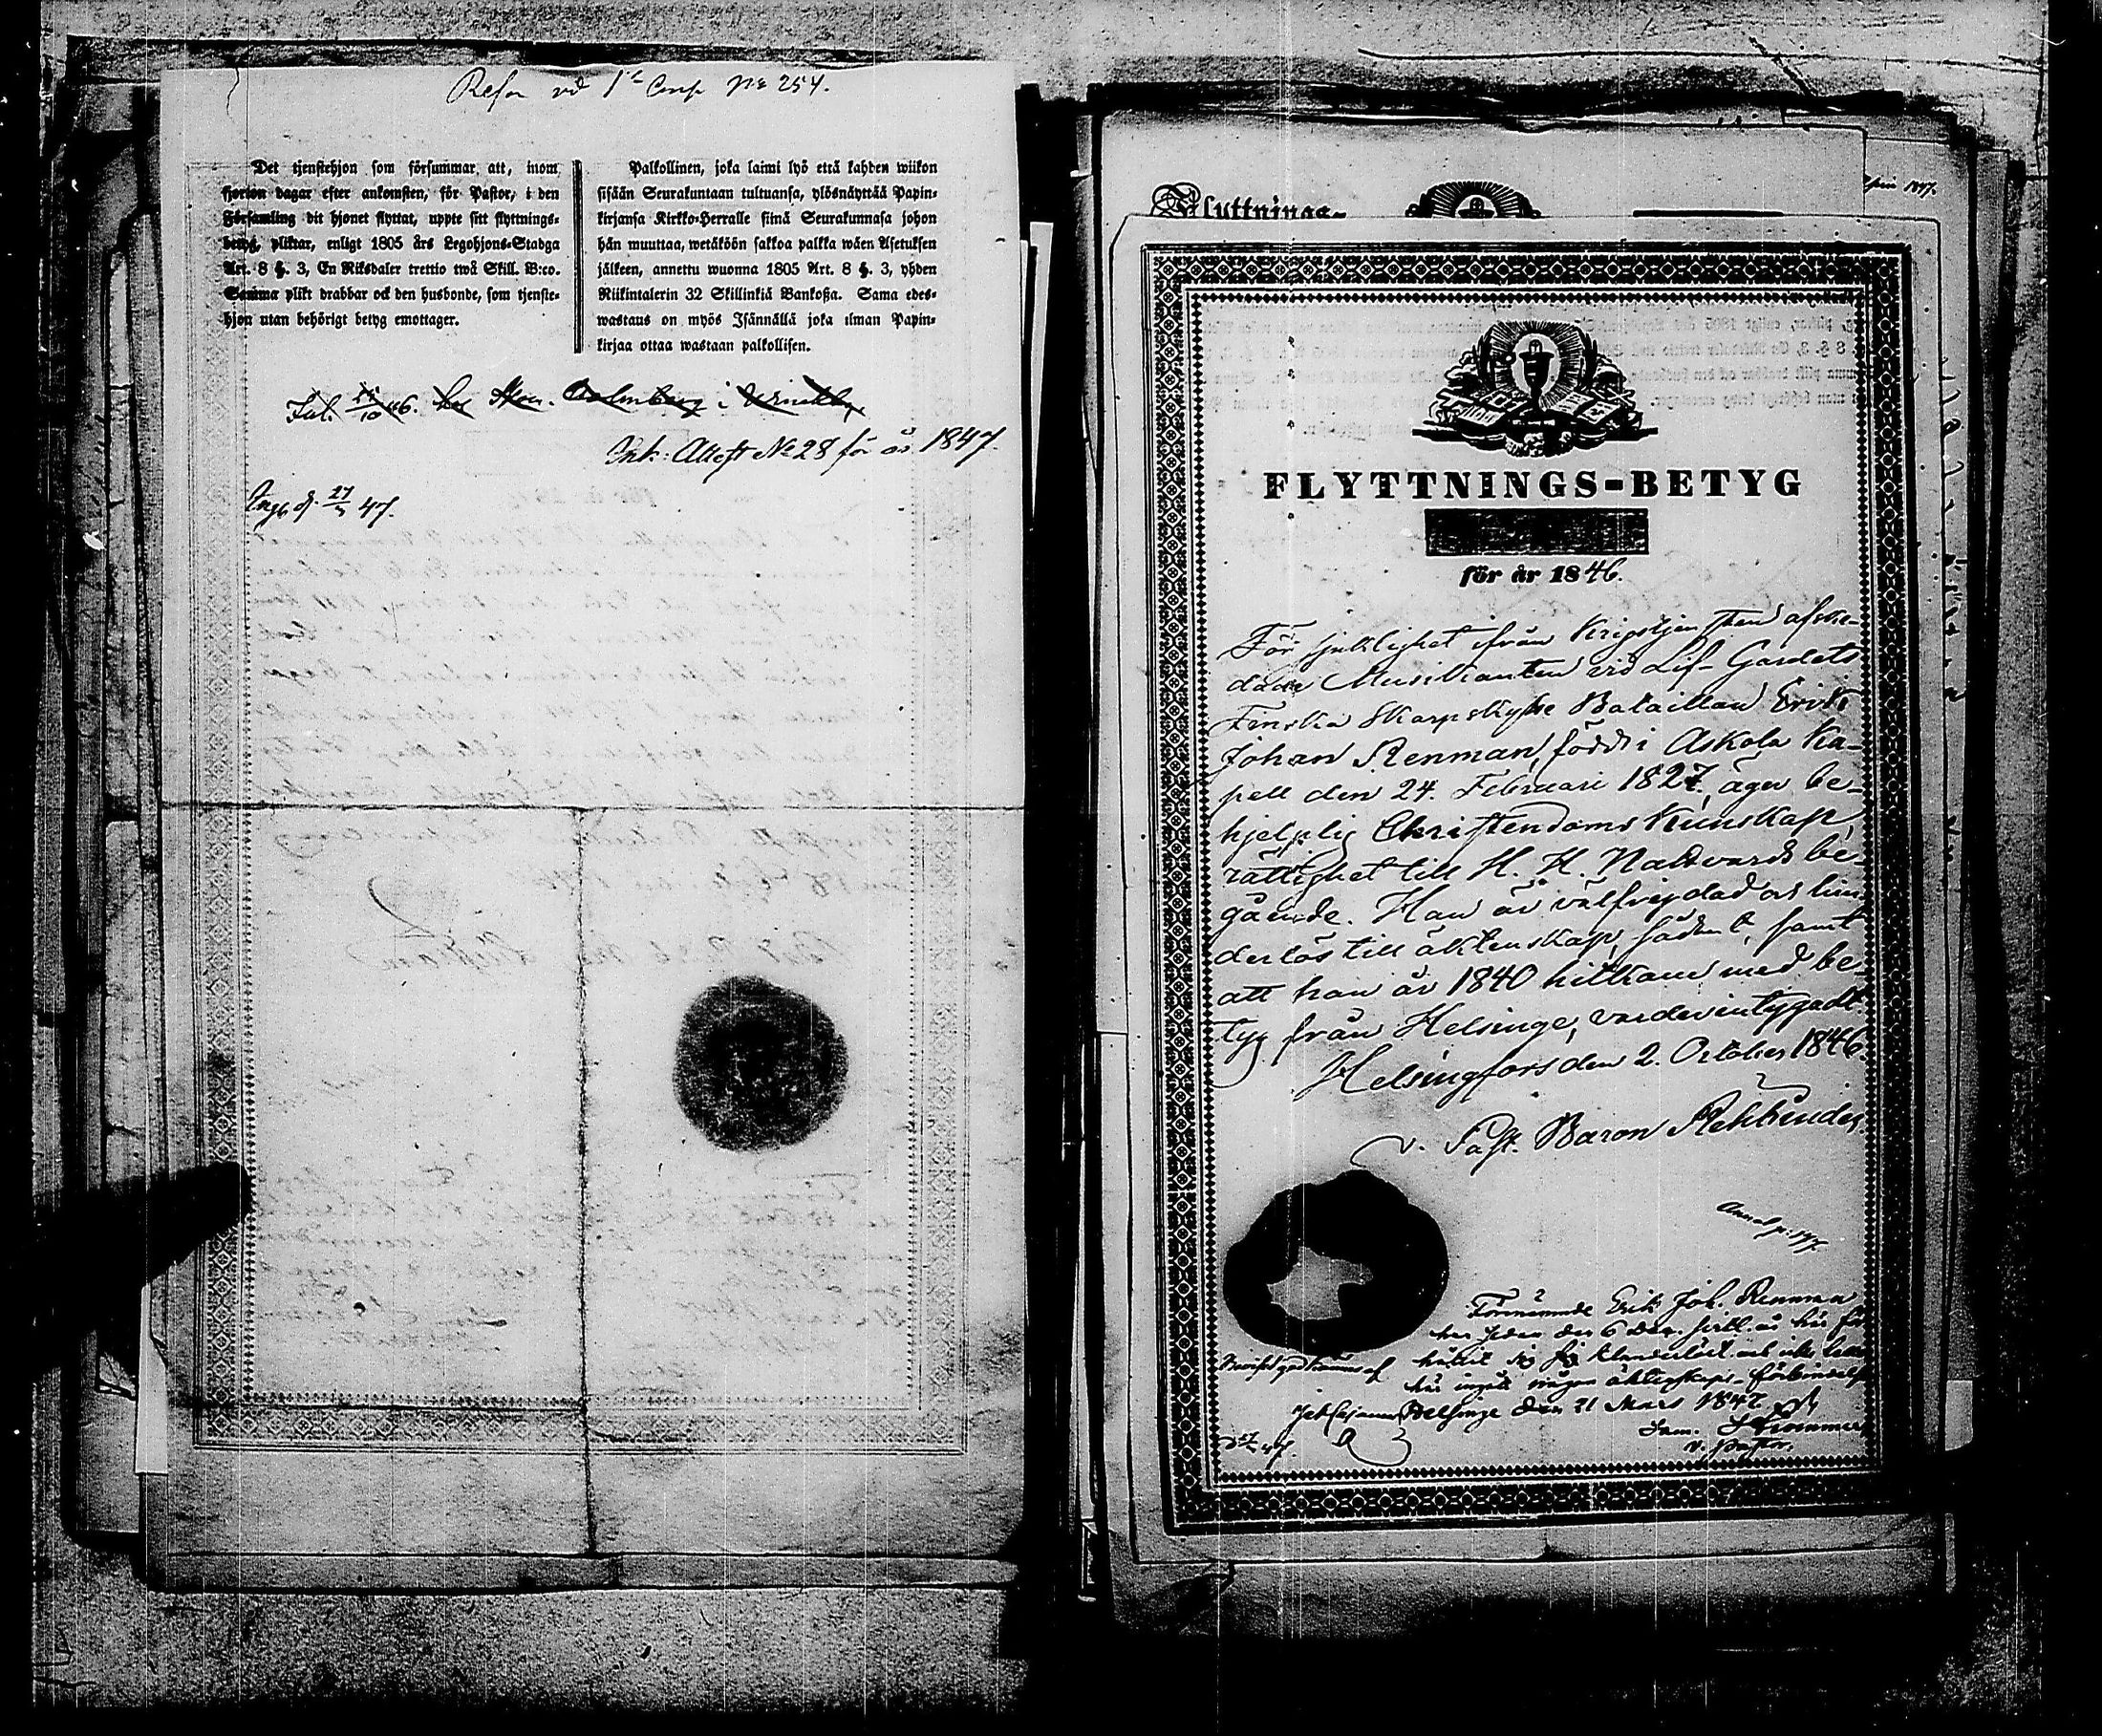 Refn vid 1ta Comp No 254.
Det tjenstehjon som försummar att, inom
fjorton dagar efter ankomsten, för Pastor, i den
Församling dit hjonet flyttat, uppte sitt flyttnings-
betyg, pliktar, enligt 1805 års Legohjons-Stadga
Art. 8 §. 3, En Riksdaler trettio twå Skill. B:co.
Samma plikt drabbar ock den husbonde, som tjenste-
hjon utan behörigt betyg emottager.
Palkollinen, joka laimi lyö että kahden wiikon
sisään Seurakuntaan tultuansa, ylösnäyttää Papin-
kirjansa Kirkko-Herralle siinä Seurakunnasa johon
hän muuttaa, wetäköön sakkoa palkka wäen Asetuksen
jälkeen, annettu wuonna 1805 Art. 8 §. 3, yhden
Riikintalerin 32 Skillinkiä Bankoßa. Sama edes-
wastaus on myös Isännällä joka ilman Papin-
kirjaa ottaa wastaan palkollisen.
46. hos i
Ink: Attest No 28 för år 1847.
47.
April 1847.
Flyttnings-
FLYTTNINGS-BETYG
för år 1846.
För sjuklighet ifrån Krigstjensten afske-
dade Musikanten vid Lif-Gardets
Finska Skarpskytte Bataillon Erik
Johan Renman, född i Askola Ka-
pell den 24. Februari 1827, äger be-
hjelplig Christendoms Kunskap,
rättighet till H. H. Nattvards be-
gående. Han är välfrejdad och hin-
derlös till äktenskap, sådant, samt
att han år 1840 hitkom med be-
tyg från Helsinge, varder intygadt.
Helsingfors den 2. October 1846.
v. Past. Baron Rehbinder.
Förnämnde Erik Joh. Renman
har sedan den 6 Dec. sistl. år här för
hållit sig och icke
här ingått någon äktenskaps-förbindelse
Helsinge den 21 Mars 1847
Sam.
v. Pastor.
47.